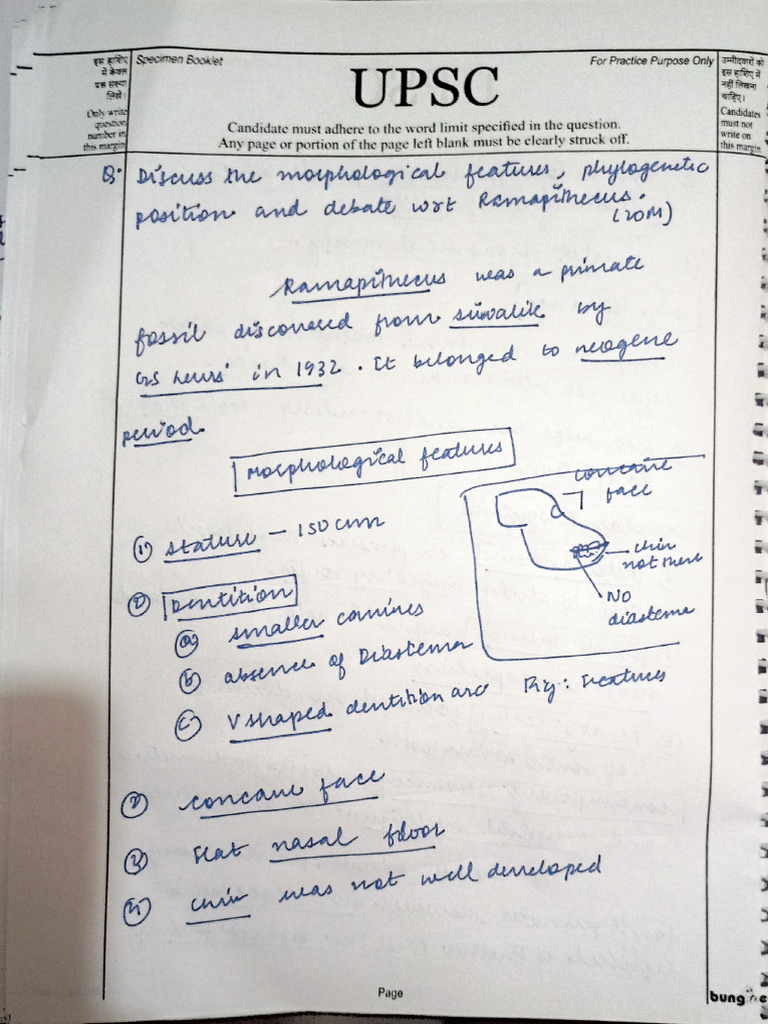 इस हाशिए
में केवल
प्रश्न संख्या
लिखें।
Only write
question
number in
this margin
Specimen Booklet
For Practice Purpose Only
UPSC
Candidate must adhere to the word limit specified in the question.
Any page or portion of the page left blank must be clearly struck off.
उम्मीदवारों को
इस हाशिए में
नहीं लिखना
चाहिए।
Candidates
must not
write on
this margin
Q. Discuss the morphological features, phylogenetic
position and debate wrt Ramapithecus.
(20M)
Ramapithecus was a primate
fossil discovered from siwalik by
GS lewis in 1932. It belonged to neogene
period.
Morphological features
concave
face
chin
not there
No
diastema
Fig: Features
① stature – 150 cm
② Dentition
ⓐ smaller canines
ⓑ absence of Diastema
ⓒ V shaped dentition arc
② concave face
③ Flat nasal floor
④ chin was not well developed
Page